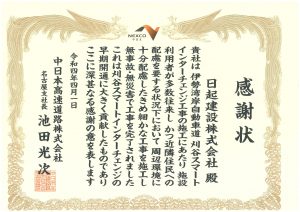 NEXCO
感謝状
日起建設株式会社 殿
貴社は伊勢湾岸自動車道 刈谷スマート
インターチェンジ工事の施工にあたり 施設
利用者が多数往来し かつ近隣住民への
配慮を要する状況下において 周辺環境に
十分配慮したきめ細かな工事を施工し
無事故・無災害で工事を完了されました
これは刈谷スマートインターチェンジの
早期開通に大きく貢献したものであり
ここに深甚なる感謝の意を表します
令和四年四月一日
中日本高速道路株式会社
名古屋支社長 池田光次